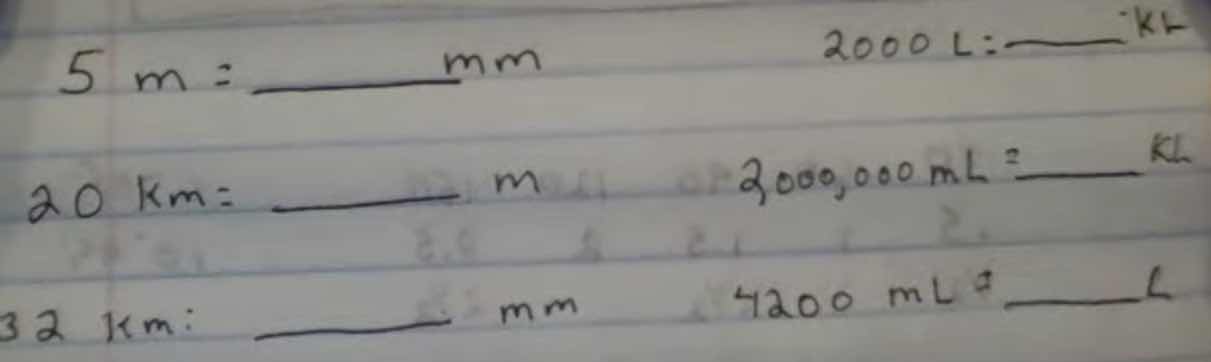 5 m = ______ mm
2000 L = ______ KL
20 Km = ______ m
2000,000 mL = ______ KL
32 Km = ______ mm
4200 mL = ______ L